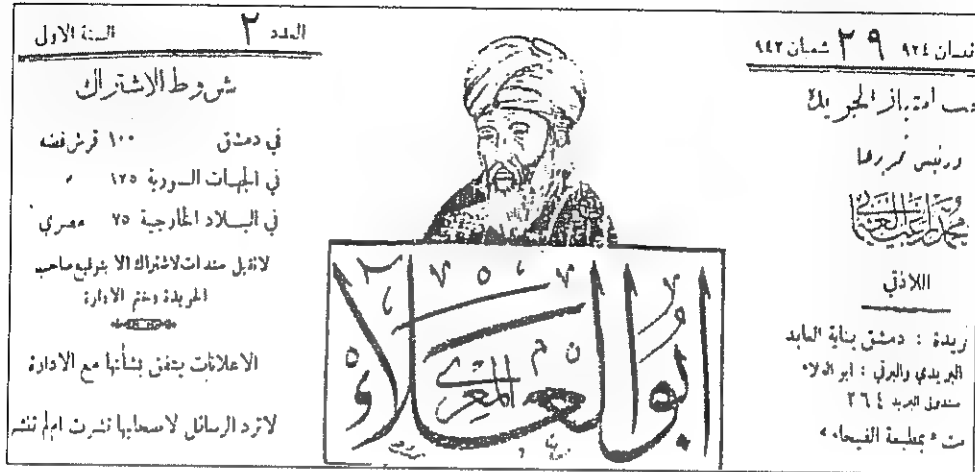 نيسان ٩٢٤ ٢٩ شعبان ٩٤٢
امتياز الجريدة
ورئيس تحريرها
اللاذقي
دمشق بناية العابد
البريدي والبرقي : ابو العلاء
صندوق البريد ٢٦٤
بمطبعة الفيحاء »
ابو العلاء
المعري
العدد ٢ السنة الاولى
شروط الاشتراك
في دمشق ١٠٠ قرش فضه
في الجهات السورية ١٢٥ »
في البلاد الخارجية ٧٥ مصري
لاتقبل سندات الاشتراك الا بتوقيع صاحب
الجريدة وختم الادارة
الاعلانات يتفق بشأنها مع الادارة
لاترد الرسائل لاصحابها نشرت ام لم تنشر